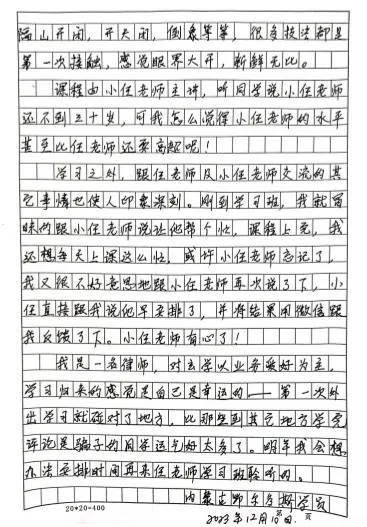 隔山开闭，开天闭，倒象等等，很多技法都是
第一次接触，感觉眼界大开，新鲜无比。
课程由小任老师主讲，听同学说小任老师
还不到三十岁，可我怎么觉得小任老师的水平
甚至比任老师还要高级呢！
学习之外，跟任老师及小任老师交流的其
它事情也使人印象深刻。刚到学习班，我就冒
昧的跟小任老师说让他帮个忙，课程上完，我
还想每天上课这么忙，或许小任老师忘记了，
我又很不好意思地跟小任老师再次说了下，小
任直接跟我说他早安排了，并将结果用微信跟
我反馈了下。小任老师有心了！
我是一名律师，对玄学以业务爱好为主，
学习归来的感觉是自己是幸运的——第一次外
出学习就碰对了地方，比那些到其它地方学完
评说是骗子的同学运气好太多了。明年我会想
办法安排时间再来任老师学习班聆听的。
内蒙古 学员
20*20=400
第 页
2023年12月10日